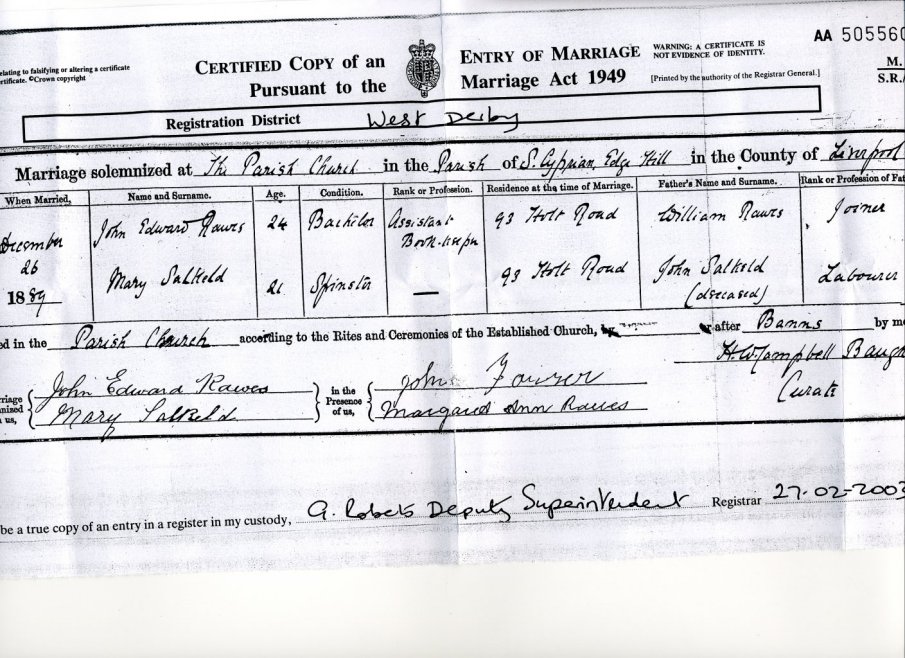 AA 505560
elating to falsifying or altering a certificate
ertificate. ©Crown copyright
CERTIFIED COPY of an ENTRY OF MARRIAGE
Pursuant to the Marriage Act 1949
WARNING: A CERTIFICATE IS
NOT EVIDENCE OF IDENTITY.
[Printed by the authority of the Registrar General.]
M.
S.R.
Registration District West Derby
Marriage solemnized at The Parish Church in the Parish of S. Cyprian, Edge Hill in the County of Liverpool
When Married. Name and Surname. Age. Condition. Rank or Profession. Residence at the time of Marriage. Father's Name and Surname. Rank or Profession of Fat
December 26 1889
John Edward Rawes 24 Bachelor Assistant Book-keeper 93 Holt Road William Rawes Joiner
Mary Salkeld 21 Spinster — 93 Holt Road John Salkeld (deceased) Labourer
ed in the Parish Church according to the Rites and Ceremonies of the Established Church, or after Banns by me
H. W. Campbell Baugh
Curate
riage
nized
n us,
John Edward Rawes
Mary Salkeld
in the
Presence
of us,
John
Margaret Ann Rawes
be a true copy of an entry in a register in my custody, A. Roberts Deputy Superintendent Registrar 27-02-2003